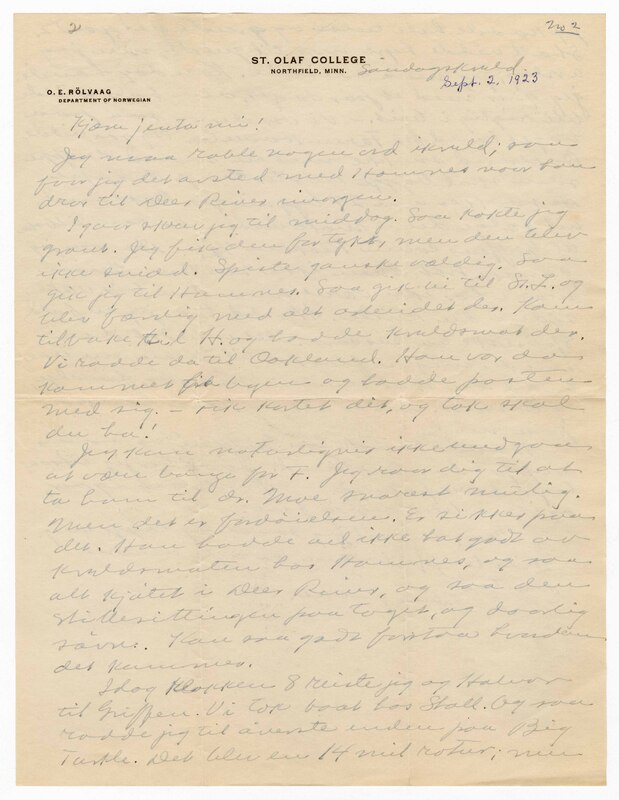 2
No 2
ST. OLAF COLLEGE
NORTHFIELD, MINN.
Søndagskveld
Sept. 2, 1923
O. E. RÖLVAAG
DEPARTMENT OF NORWEGIAN
Kjære jenta mi!
Jeg maa rable nogen ord ikveld; saa
faar jeg det avsted med Hamnes naar han
drar til Deer River imorgen.
I gaar skar jeg til middag. Saa kokte jeg
graut. Jeg fik den for tykk, men den blev
ikke svidd. Spiste ganske veldig. Saa
gik jeg til Hamnes. Saa gik vi til St. L. og
blev færdig med alt arbeidet der. Kom
tilbake til H. og hadde kveldsmat der.
Vi rodde da til Oakland. Han var da
kommet fra byen og hadde posten
med sig. – Fik kortet dit, og tak skal
du ha!
Jeg kan naturligvis ikke undgaa
at være bange for F. Jeg raar dig til at
ta ham til dr. Moe snarest mulig.
Men det er fordøielsen. Er sikker paa
det. Han hadde vel ikke hat godt av
kveldsmaten hos Hamnes, og saa
alt kjøtet i Deer River, og saa den
stillesittingen paa toget, og daarlig
søvn. Kan saa godt forstaa hvordan
det kommer.
Idag klokken 8 reiste jeg og Halvor
til Griffen. Vi tok baat hos Stoll. Og saa
rodde jeg til øverste enden paa Big
Turtle. Det blev en 14 mil rotur; men